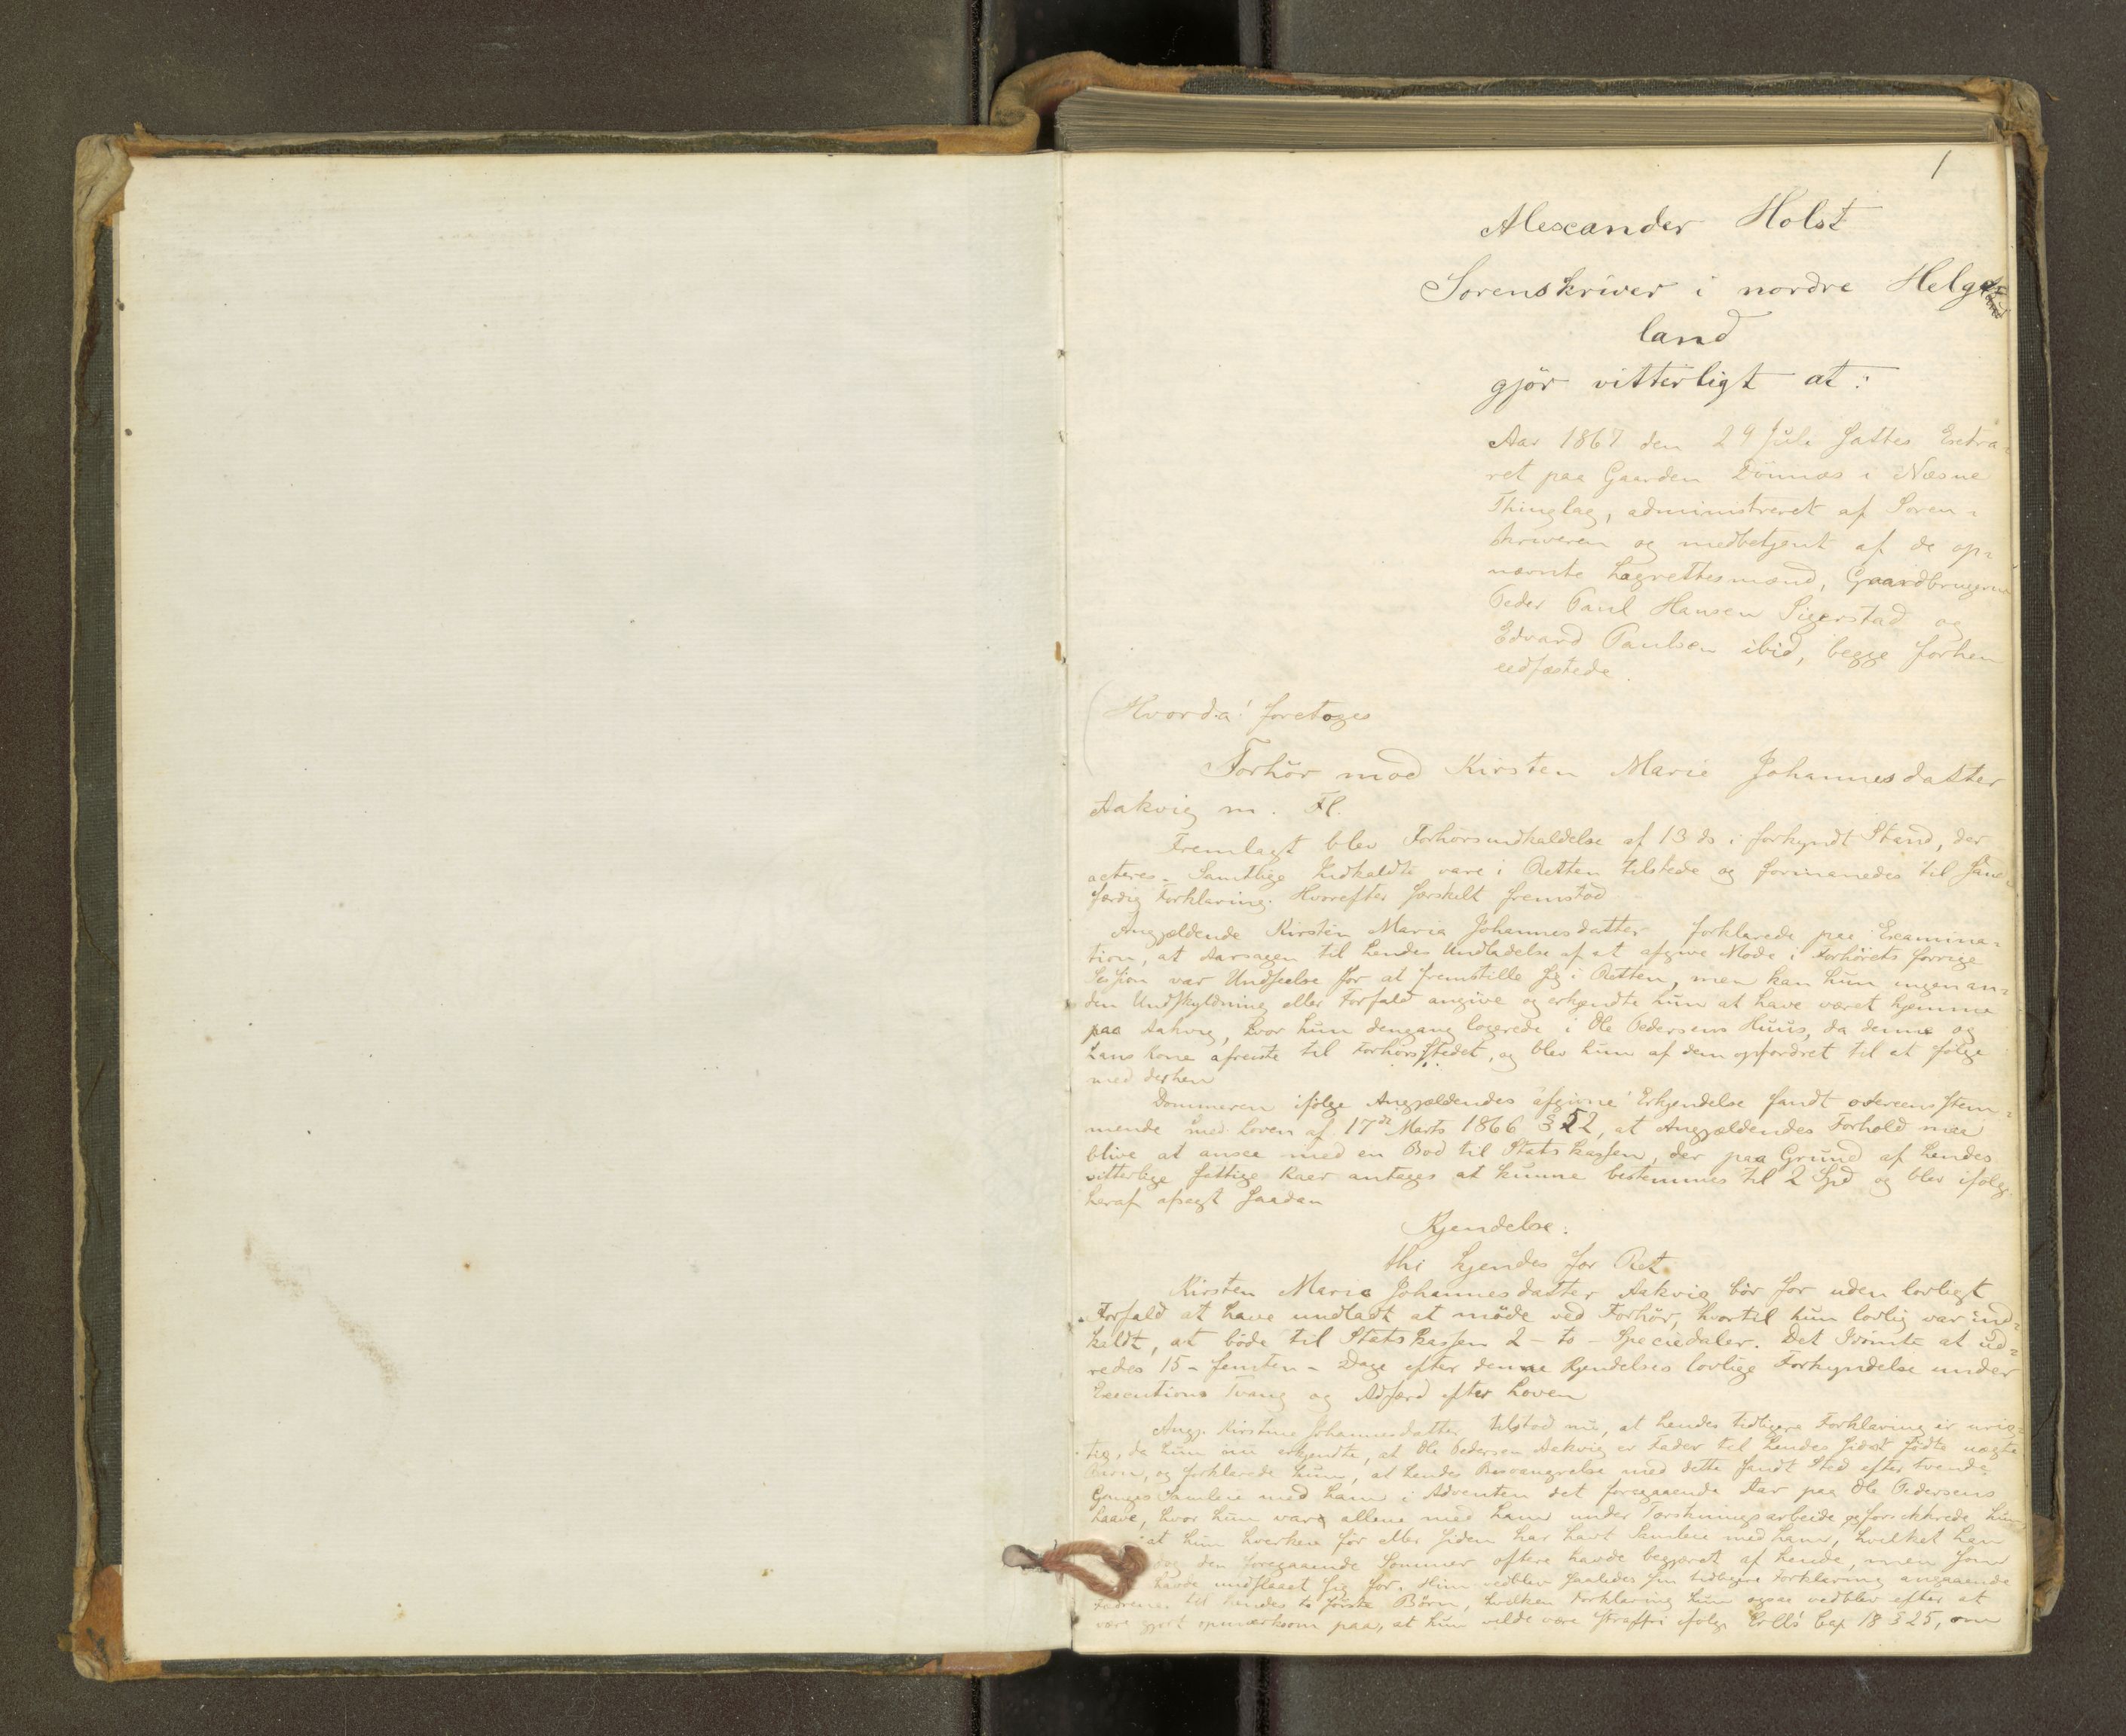 1
Alexander Holst
Sorenskriver i nordre Helge=
land
gjör vitterligt at:
Aar 1867 den 24 Juli sattes Extra=
ret paa Gaarden Dönnæs i Næsne
Thinglag, administreret af Soren=
skriveren og medbetjent af de op=
nævnte Lagrettesmænd, Gaardbrugerne
Peder Paul Hansen Sigerstad og
Edvard Paulsen ibid, begge forhen
eedfæstede.
Hvorda! foretoges
Forhör mod Kirsten Marie Johannesdatter
Aakvig m. Fl.
Fremlagt blev Forhörsindkaldelse af 13 ds i forkyndt Stand, der
acteres. Samtlige Indkaldte vare i Retten tilstede og formanedes til sand=
færdig Forklaring. Hvorefter særskilt fremstod
Angjældende Kirsten Maria Johannesdatter forklarede paa Examina=
tion, at Aarsagen til hendes Undladelse af at afgive Möde i Forhörets forrige
Session var Undseelse for at fremstille sig i Retten, men kan hun ingen an=
den Undskyldning eller Forfald angive og erkjendte hun at have været hjemme
paa Aakvig, hvor hun dengang logerede i Ole Pedersens Huus, da denne og
hans Kone afreiste til Forhörsstedet, og blev hun af dem opfordret til at fölge
med derhen
Dommeren ifölge Angjældendes afgivne Erkjendelse fandt overeensstem=
mende med Loven af 17de Marts 1866 § 52, at Angjældendes Forhold maa
blive at ansee med en Bod til Statskassen, der paa Grund af hendes
vitterlige fattige Kaar antages at kunne bestemmes til 2 Spd og blev ifölge
heraf afsagt saadan
Kjendelse:
thi kjendes for Ret
Kirsten Maria Johannesdatter Aakvig bör for uden lovligt
Forfald at have undladt at möde ved Forhör, hvortil hun lovlig var ind=
kaldt, at böde til Statskassen 2 - to - Speciedaler. Det Idömte at ud=
redes 15 - femten - Dage efter denne Kjendelses lovlige Forkyndelse under
Executions Tvang og Adfærd efter Loven
Angj. Kirstine Johannesdatter tilstod nu, at hendes tidligere Forklaring er urig=
tig, da hun nu erkjendte, at Ole Pedersen Aakvig er Fader til hendes sidst födte uægte
Barn, og forklarede hun, at hendes Besvangrelse med dette fandt Sted efter tvende
Ganges Samleie med ham i Adventen det foregaaende Aar paa Ole Pedersens
Laave, hvor hun vare allene med ham under Tærskningsarbeide og forsikkrede hun
at hun hverken för eller siden har havt Samleie med ham, hvilket han
dog den foregaaende Sommer oftere havde begjæret af hende, men som
havde undslaaet sig for. Hun vedblev saaledes sin tidligere Forklaring angaaende
Fædrene til hendes to förste Börn, hvilken Forklaring hun ogsaa vedblev efter at
være gjort opmærksom paa, at hun vilde være straffri ifölge Cr. Ls Cap 18 § 25, om